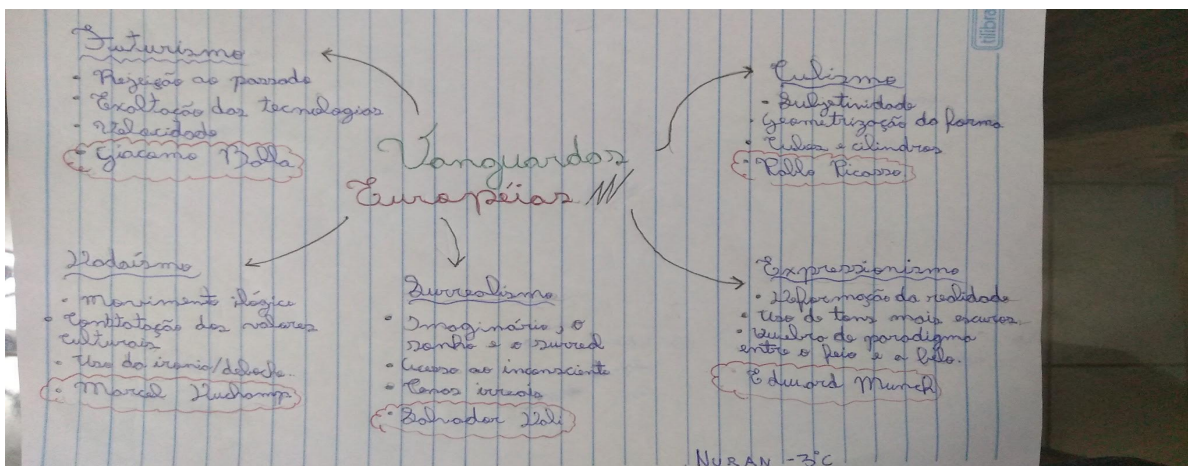 Vanguardas
Européias
Futurismo
• Rejeição ao passado
• Exaltação das tecnologias
• Velocidade
• Giacomo Balla
Cubismo
• Subjetividade
• Geometrização da forma
• Cubos e cilindros
• Pablo Picasso
Dadaísmo
• Movimento ilógico
• dos valores
culturais
• Uso da ironia/deboche.
• Marcel Duchamp
Surrealismo
• Imaginário, o
sonho e o surreal
• Acesso ao inconsciente
• Cenas irreais
• Salvador Dali
Expressionismo
• Deformação da realidade
• Uso de tons mais escuros.
• Quebra de paradigma
entre o feio e o belo.
• Edward Munch
NURAN -3°C
tilibra